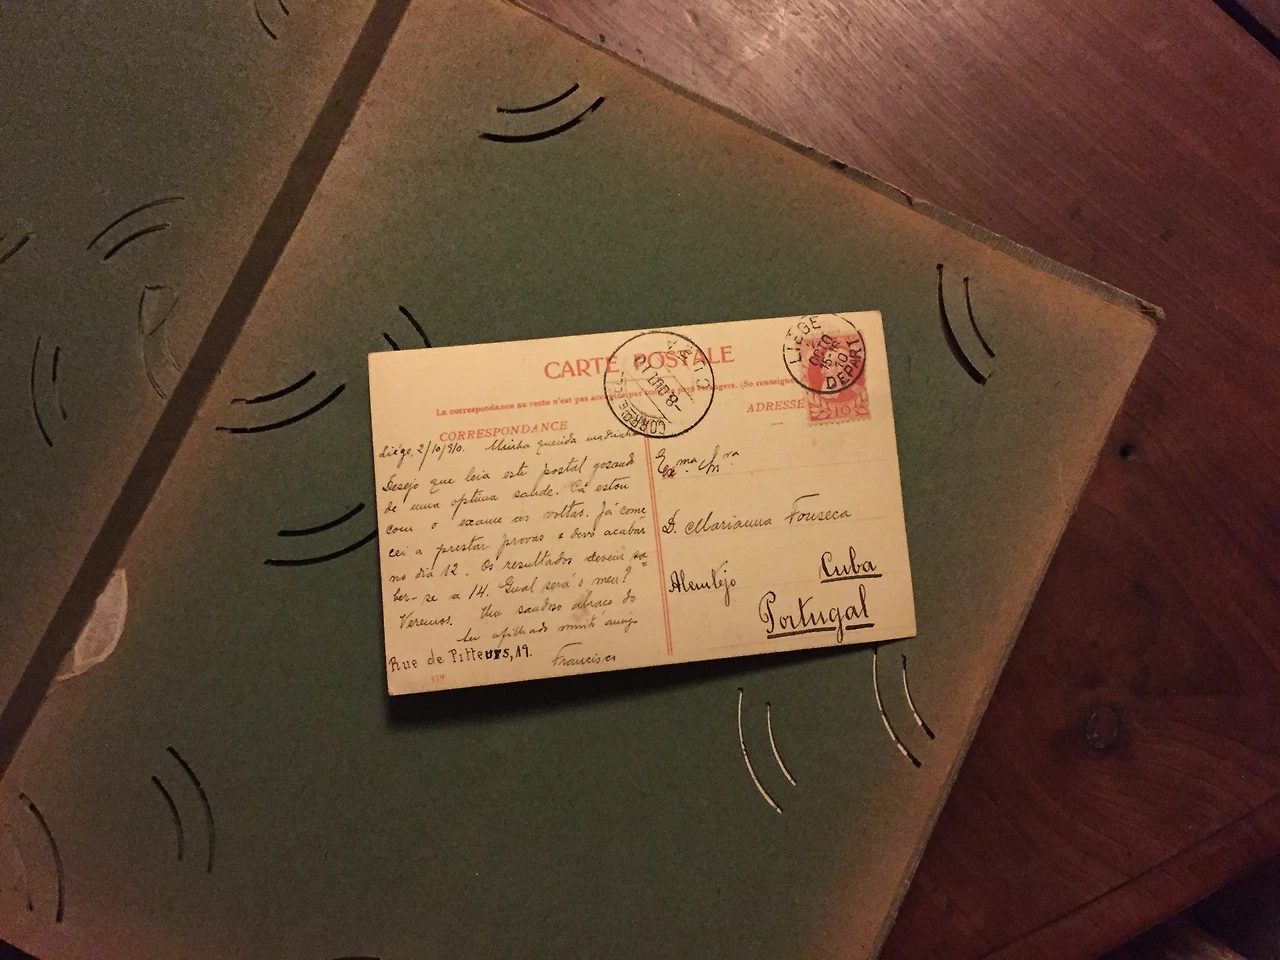 CARTE POSTALE
La correspondance au recto n'est pas acceptée par tous les pays étrangers. (Se renseigner
CORRESPONDANCE
ADRESSE
LIÉGE
OCTO
15-16
10
DEPART
10
8 OUT
Liége, 2/10/910. Minha querida madrinha
Desejo que leia este postal gozando
de uma optima saude. Cá estou
com o exame ás voltas. Já come
cei a prestar provas e devo acabar
no dia 12. Os resultados devem sa=
ber-se a 14. Qual será o meu?
Veremos. Um saudoso abraço do
seu afilhado muito amigo
Francisco
Rue de Pitteurs, 19.
159
Exma. Snra
D. Marianna Fonseca
Cuba
Alemtejo
Portugal